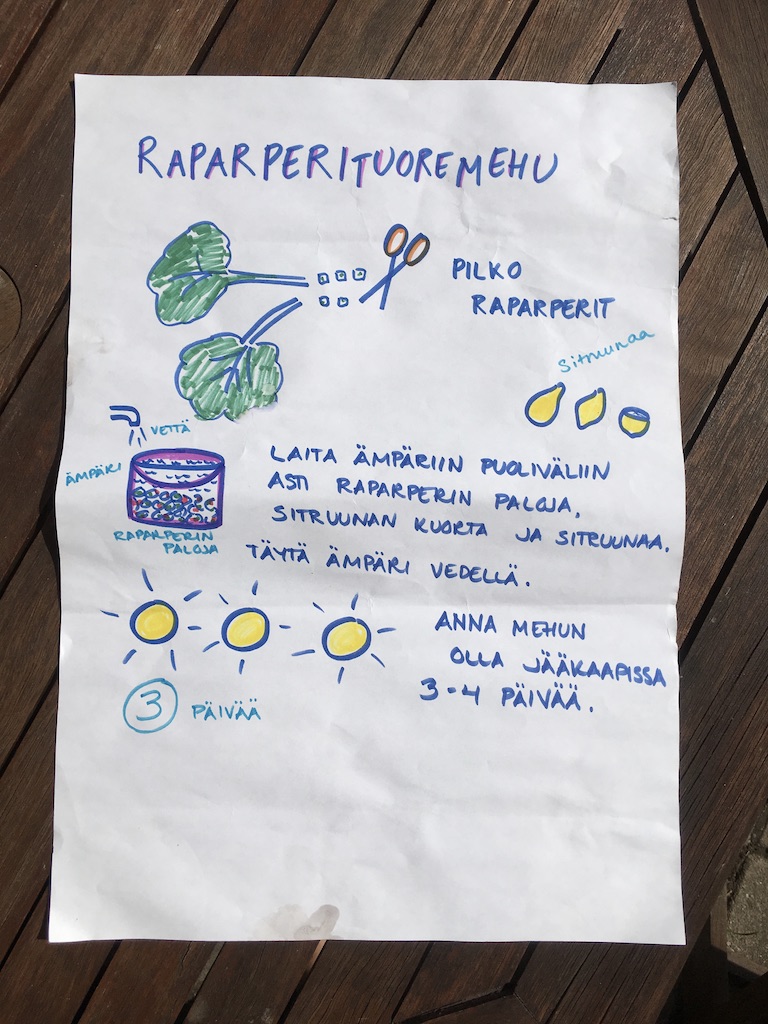 RAPARPERITUOREMEHU
PILKO
RAPARPERIT
Sitruunaa
VETTÄ
ÄMPÄRI
RAPARPERIN
PALOJA
LAITA ÄMPÄRIIN PUOLIVÄLIIN
ASTI RAPARPERIN PALOJA,
SITRUUNAN KUORTA JA SITRUUNAA.
TÄYTÄ ÄMPÄRI VEDELLÄ.
ANNA MEHUN
OLLA JÄÄKAAPISSA
3-4 PÄIVÄÄ.
3 PÄIVÄÄ